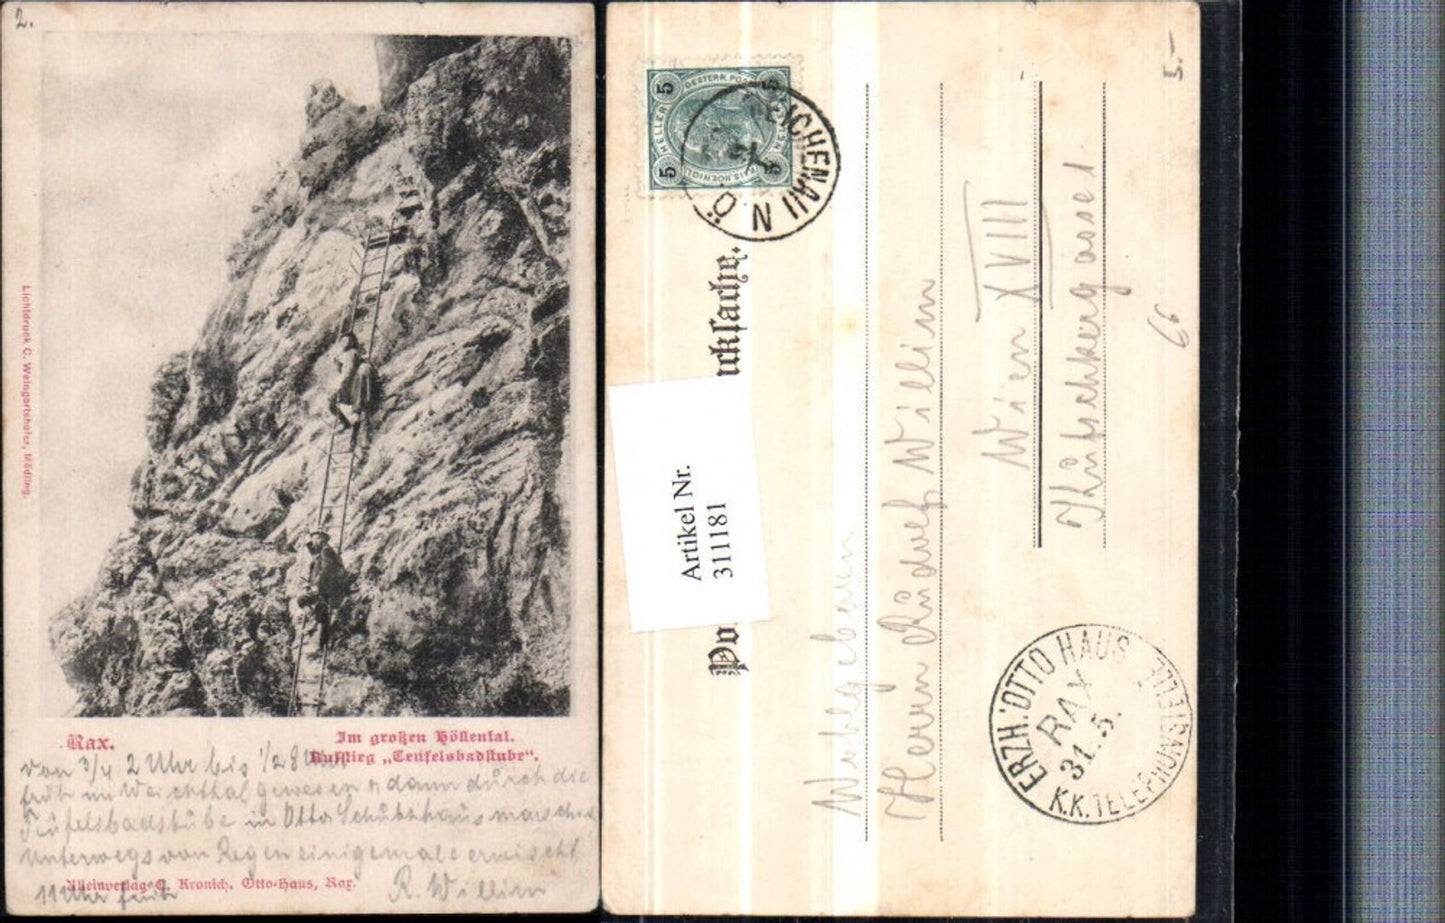 2.
Lichtdruck C. Weingartshofer, Mödling.
Rax.
Im großen Höllental.
Aufstieg „Teufelsbadstube“.
von 3/4 2 Uhr bis 1/2 8 Uhr
früh im Weichthal gewesen & dann durch die
Teufelsbadstube in Otto Schutzhaus marschiert
unterwegs von Regen einigemale erwischt
Alleinverlag C. Kronich, Otto-Haus, Rax.
11 Uhr früh R. Willim
5 OESTERR. POST 5
HELLER
5 KAIS. KOENIGL. 5
REICHENAU N.Ö.
Artikel Nr.
311181
Wohlgeboren
Herrn Rudolf Willim
Wien XVIII
Hütschkergasse 1
ERZH. OTTO HAUS
RAX
31.5.
K.K. TELEPHONSTELLE
66
5.-